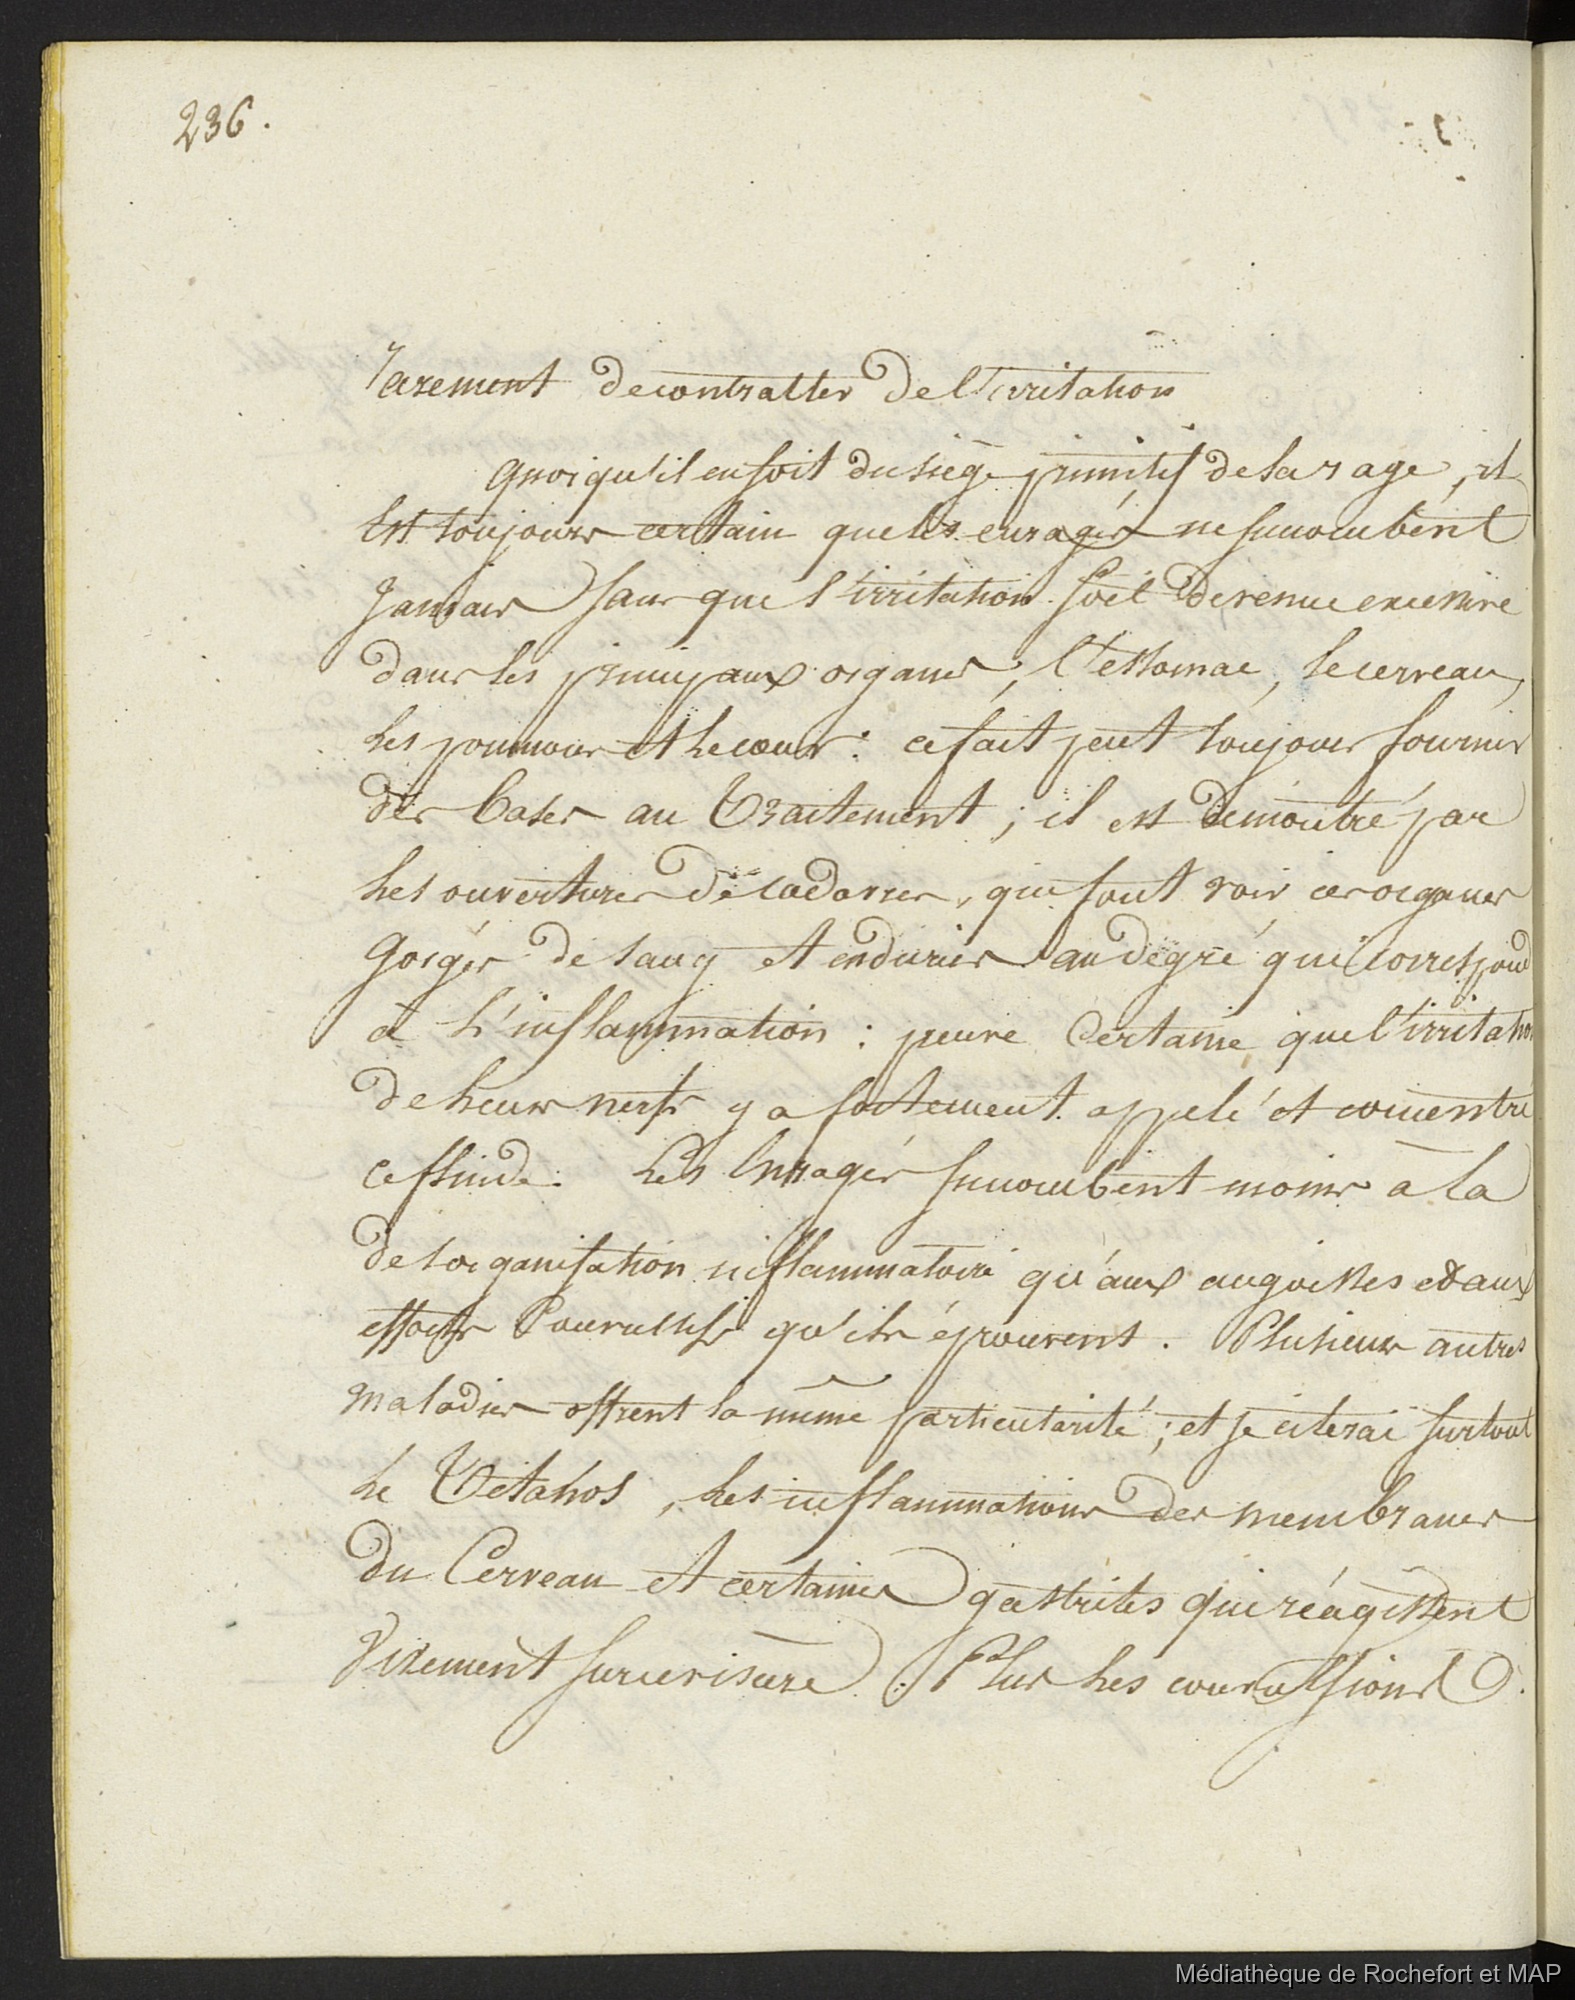 236.
rarement de contracter de l'irritation
Quoi qu'il en soit du siège primitif de la rage, il
Est toujours certain que les enragés ne succombent
Jamais sans que l'irritation soit devenue excessive
dans les principaux organes, l'estomac, le cerveau,
les poumons et le cœur : ce fait peut toujours fournir
des bases au traitement ; il est démontré par
les ouvertures de cadavres, qui font voir ces organes
Gorgés de sang et endurcis au dégré qui correspond
à l'inflammation : preuve Certaine que l'irritation
de leurs nerfs y a fortement appelé et concentré
ce fluide. Les Enragés succombent moins à la
desorganisation inflammatoire qu'aux angoisses et aux
efforts Convulsifs qu'ils éprouvent. Plusieurs autres
maladies offrent la même particularité ; et je citerai surtout
le Tétanos, les inflammations des membranes
du Cerveau et certaines gastrites qui réagissent
Vivement sur ce viscère. Plus les convulsions
Médiathèque de Rochefort et MAP